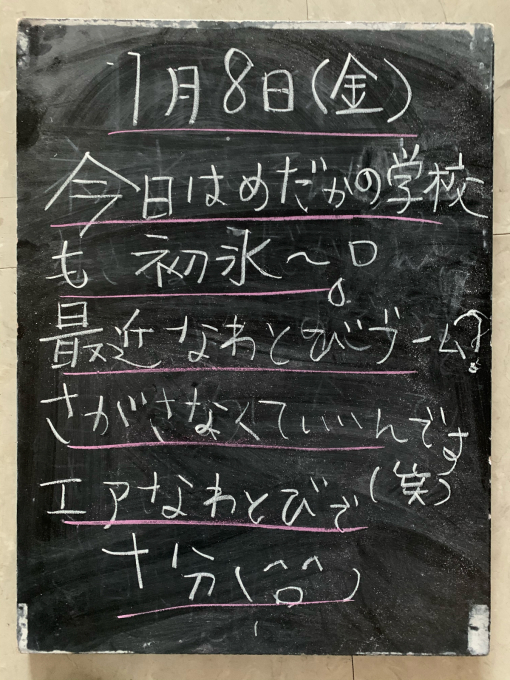 1月8日(金)
今日はめだかの学校
も 初氷〜。
最近なわとびブーム?
さがさなくていいんです
(笑)
エアなわとびで
十分(^o^)